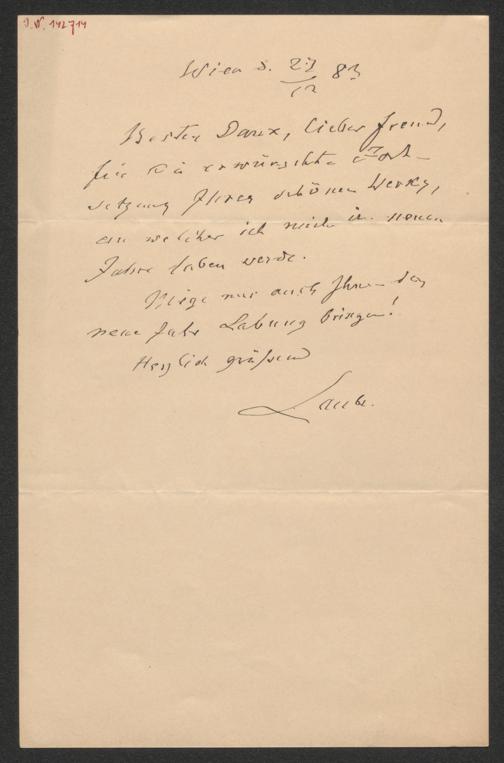 J.N. 142714
Wien d. 29/12 83
Besten Dank, lieber Freund,
für die erwünschte Fort-
setzung Ihres schönen Werkes,
an welcher ich mich im neuen
Jahre laben werde.
Möge nur auch Ihnen das
neue Jahr Labung bringen!
Herzlich grüßend
Laube.